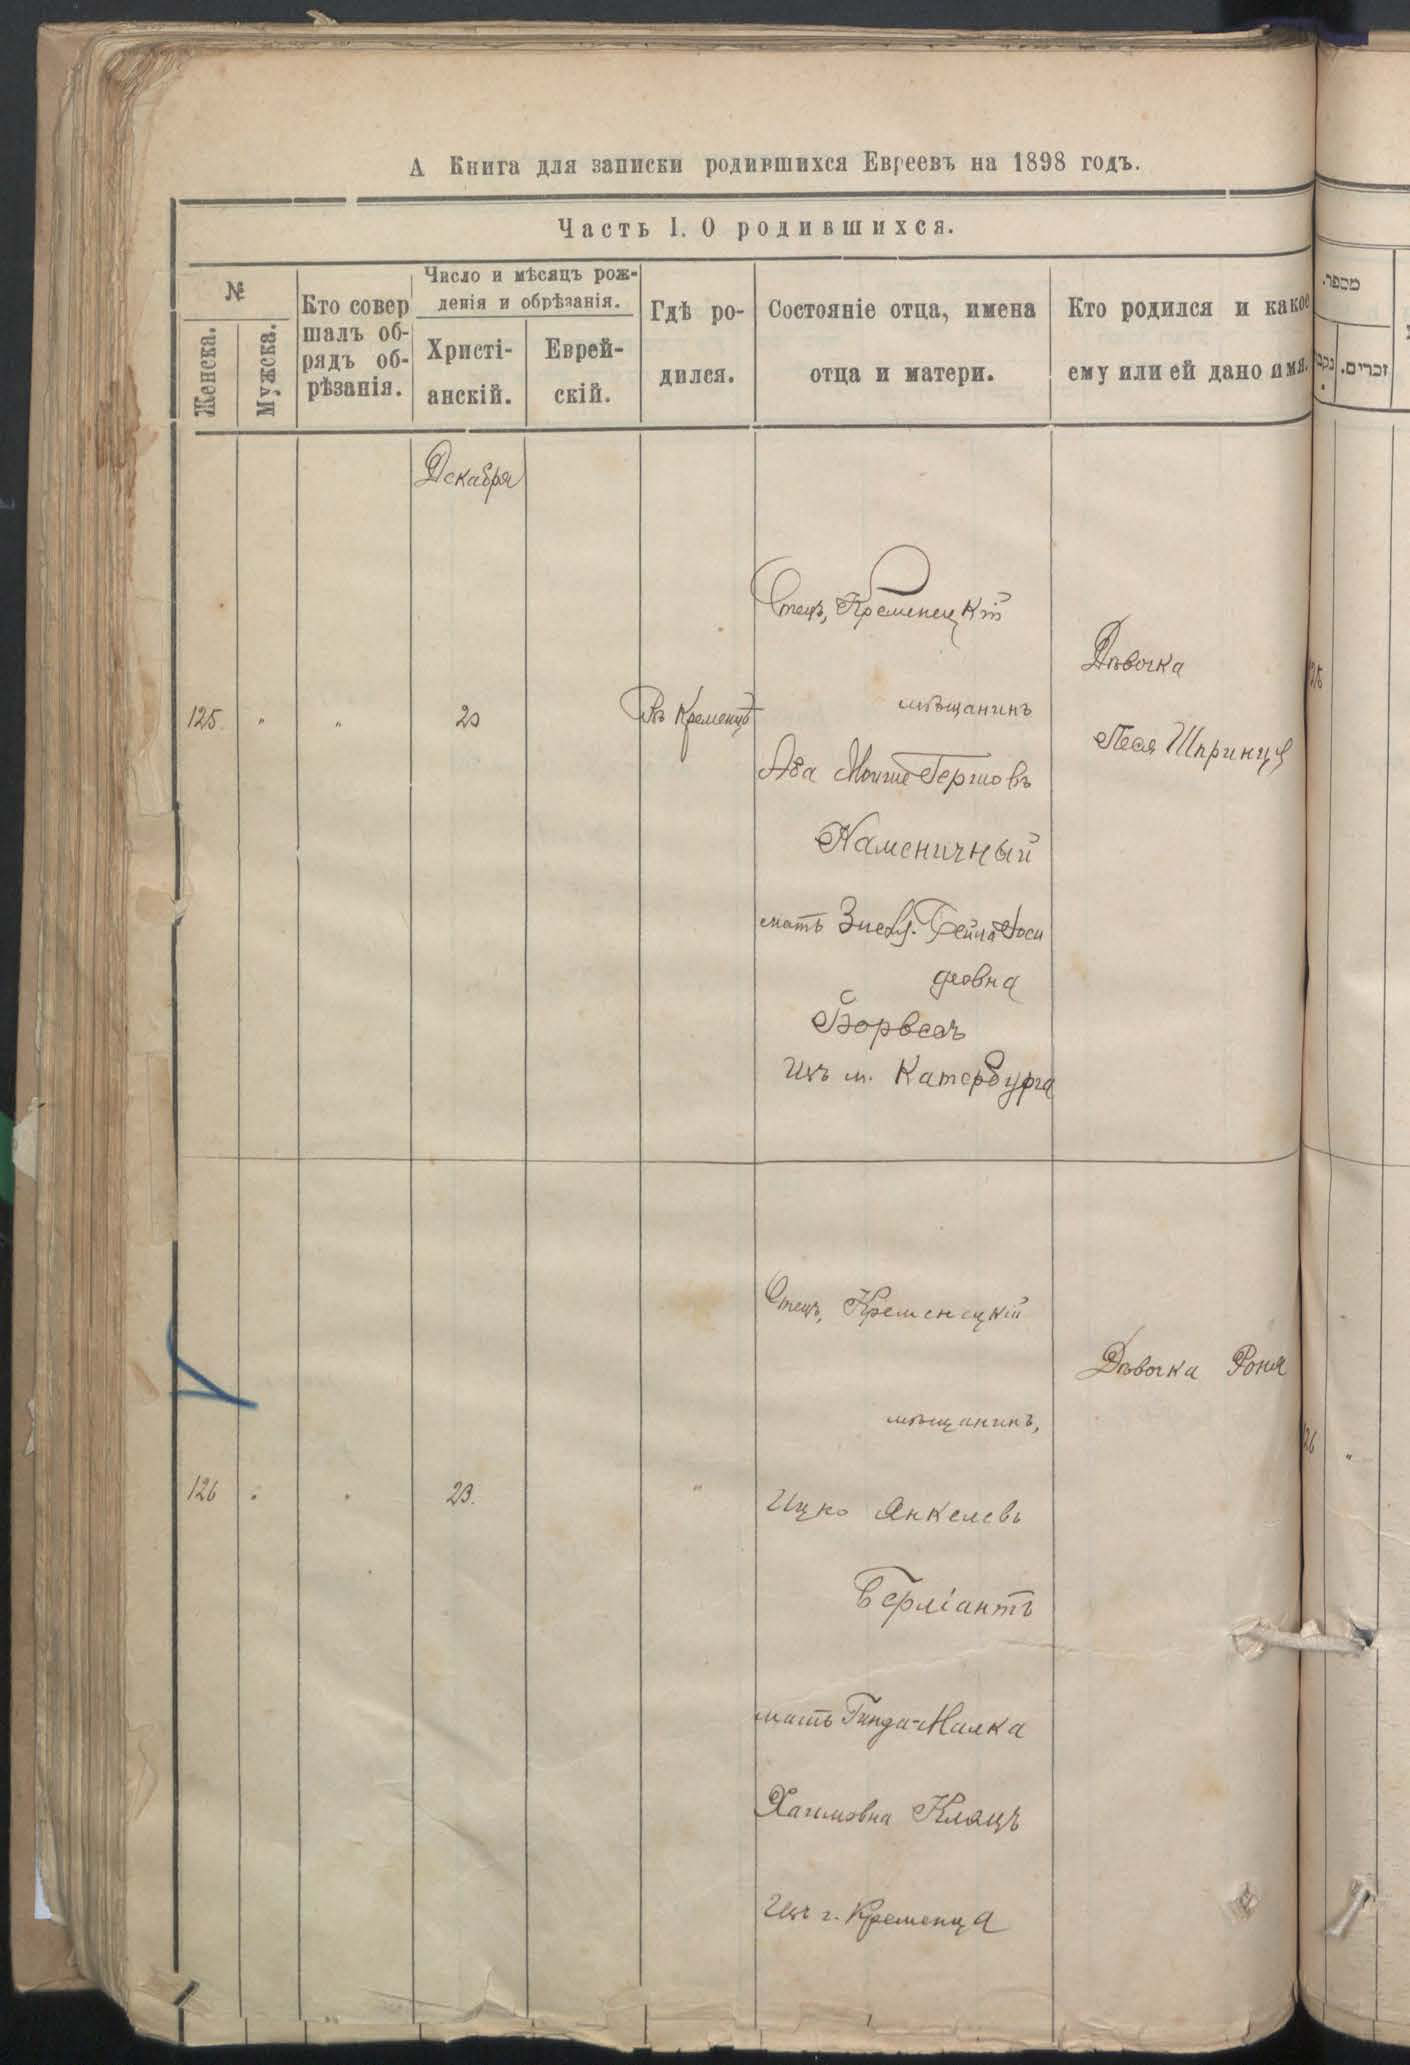 А Книга для записки родившихся Евреевъ на 1898 годъ.
Часть I. О родившихся.
№
Женска.
Мужска.
Кто совер
шалъ об-
рядъ об-
рѣзанія.
Число и мѣсяцъ рож-
денія и обрѣзанія.
Христі-
анскій.
Еврей-
скій.
Гдѣ ро-
дился.
Состояніе отца, имена
отца и матери.
Кто родился и какое
ему или ей дано имя.
מספר.
זכרים.
Декабря
125
"
"
20
Въ Кременцѣ
Отецъ, Кременецкій
мѣщанинъ
Аба Мошко Гершовъ
Каменичный
мать Бейла Иоси
фовна
изъ м. Катербурга
Дѣвочка
Песя Шпринця
126
"
"
23.
"
Отецъ, Кременецкій
мѣщанинъ,
Ицко Янкелевъ
Берліантъ
мать Гинда-Малка
Хаимовна Кляцъ
изъ г. Кременца
Дѣвочка Роня
126
"